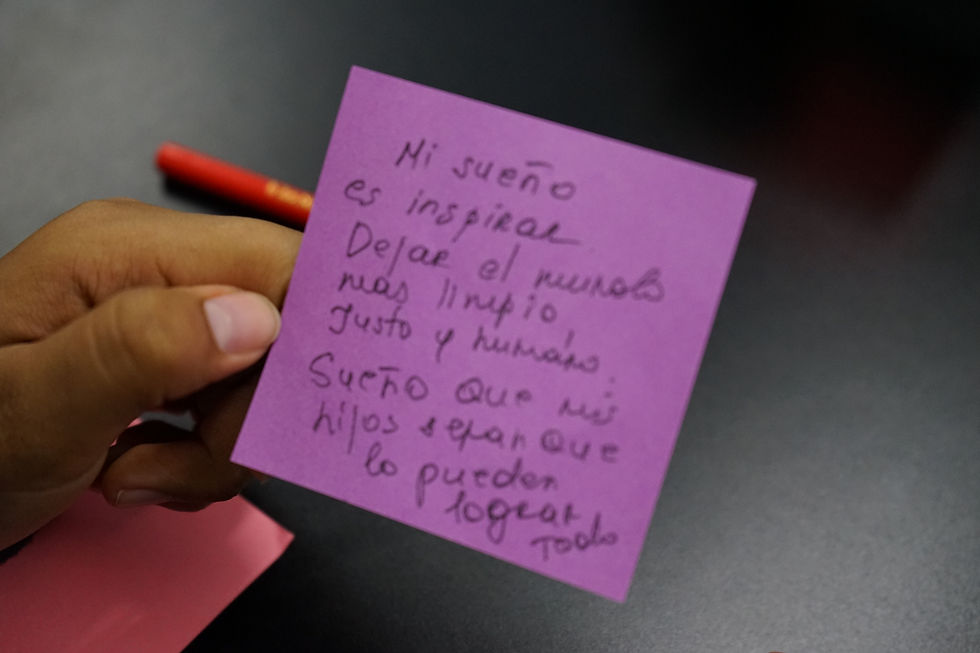 Mi sueño
es inspirar.
Dejar el mundo
mas limpio
Justo y humano.
Sueño que mis
hijos sepan que
lo pueden
lograr
Todo